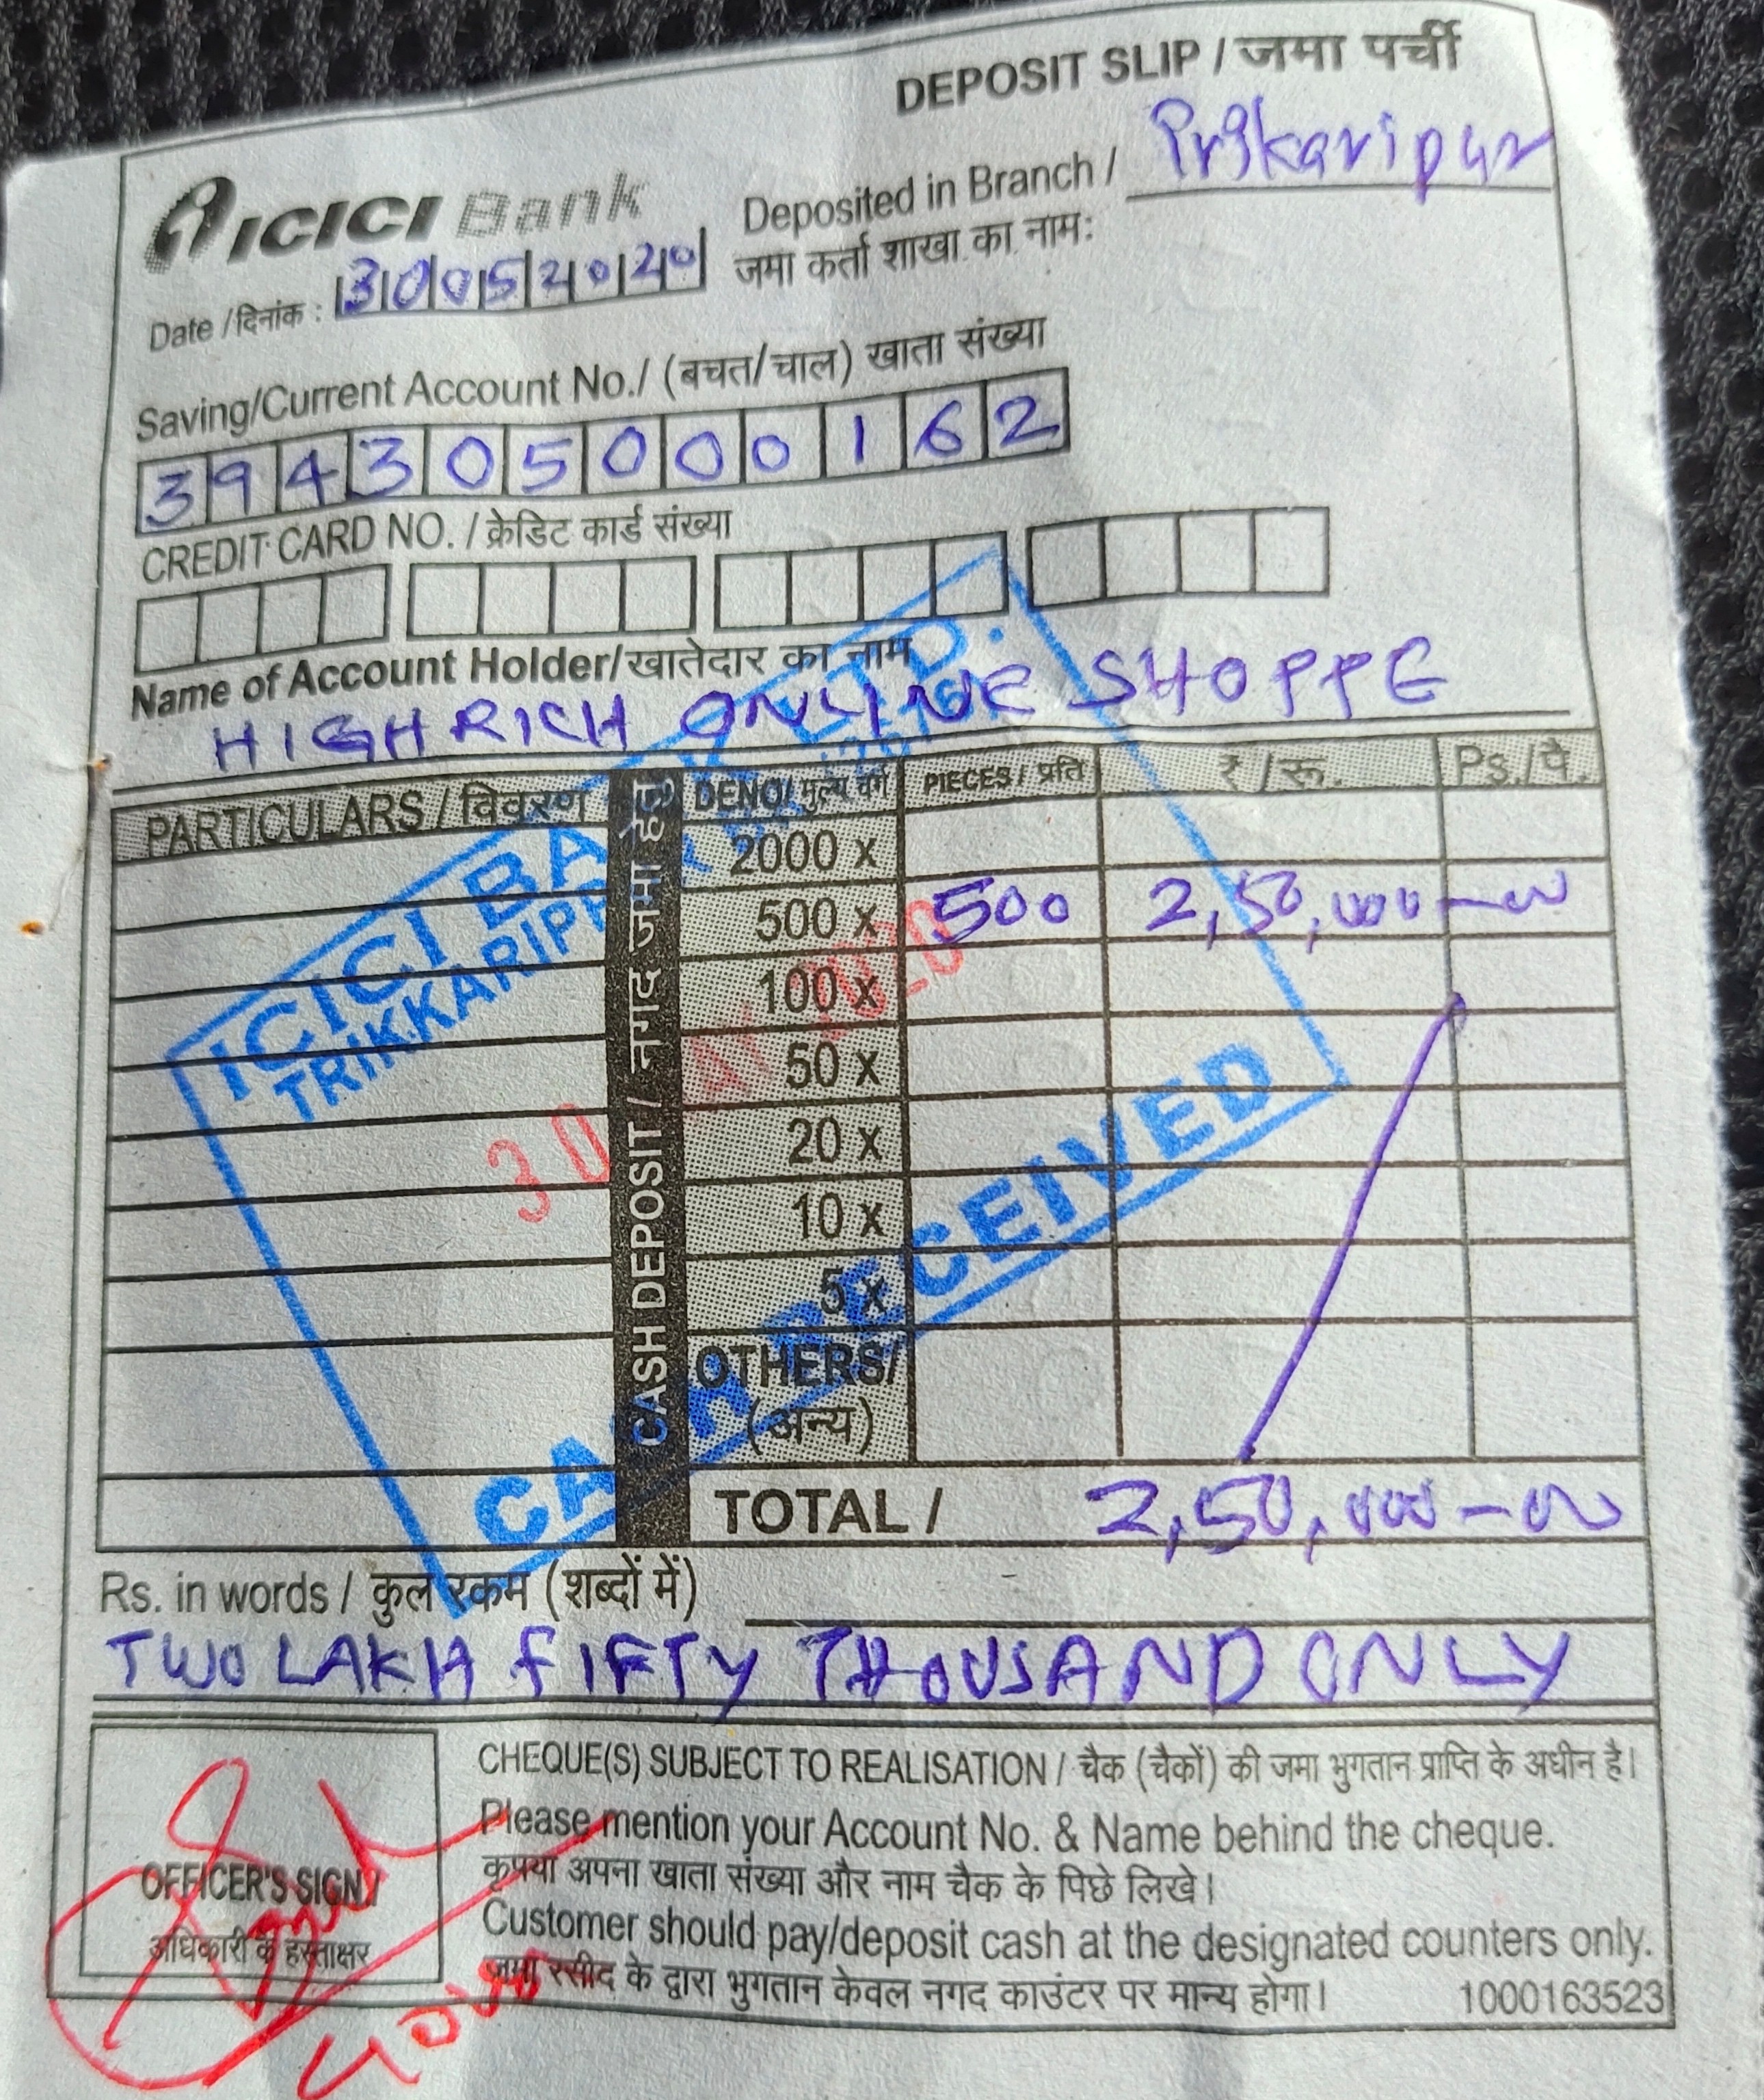 DEPOSIT SLIP / जमा पर्ची
ICICI Bank
Deposited in Branch / Prikaripur
जमा कर्ता शाखा का नाम:
Date / दिनांक : 30052020
Saving/Current Account No./ (बचत/चाल) खाता संख्या
394305000162
CREDIT CARD NO. / क्रेडिट कार्ड संख्या
Name of Account Holder/खातेदार का नाम
HIGHRICH ONLINE SHOPPE
PARTICULARS / विवरण
CASH DEPOSIT / नगद जमा हेतु
DENO/ मुल्य वर्ग PIECES / प्रति ₹ / रू. Ps./पै.
2000 x
500 x 500 2,50,000-00
100 x
50 x
20 x
10 x
5 x
OTHERS/
(अन्य)
TOTAL / 2,50,000-00
ICICI BANK LTD.
TRIKKARIPUR
30 MAY 2020
CASH RECEIVED
Rs. in words / कुल रकम (शब्दों में)
TWO LAKH FIFTY THOUSAND ONLY
OFFICER'S SIGN/
अधिकारी के हस्ताक्षर
CHEQUE(S) SUBJECT TO REALISATION / चैक (चैकों) की जमा भुगतान प्राप्ति के अधीन है।
Please mention your Account No. & Name behind the cheque.
कृपया अपना खाता संख्या और नाम चैक के पिछे लिखे।
Customer should pay/deposit cash at the designated counters only.
जमा रसीद के द्वारा भुगतान केवल नगद काउंटर पर मान्य होगा।
1000163523